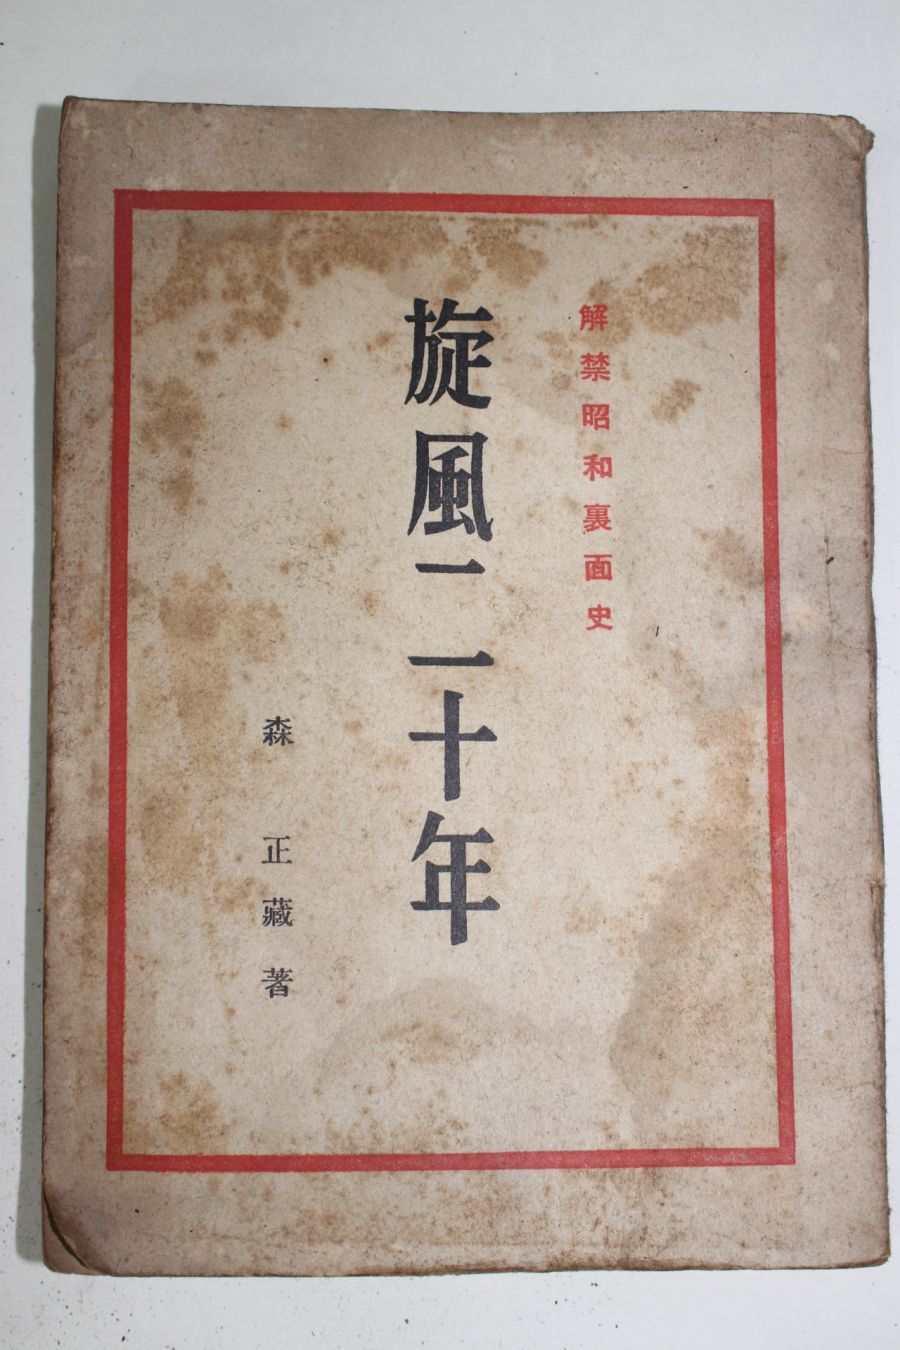 解禁昭和裏面史
旋風二十年
森 正藏著